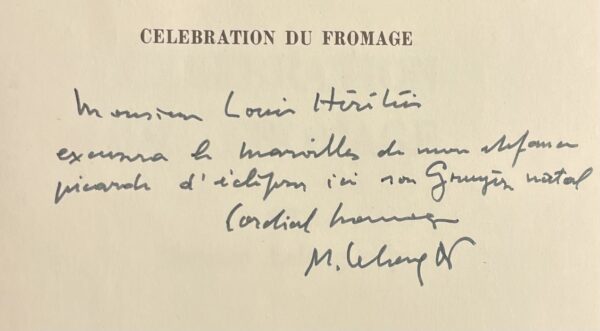 CELEBRATION DU FROMAGE
Monsieur Louis Héritier
excusera le maroilles de mon enfance
picarde d'éclipser ici son Gruyère natal
Cordial hommage
M.